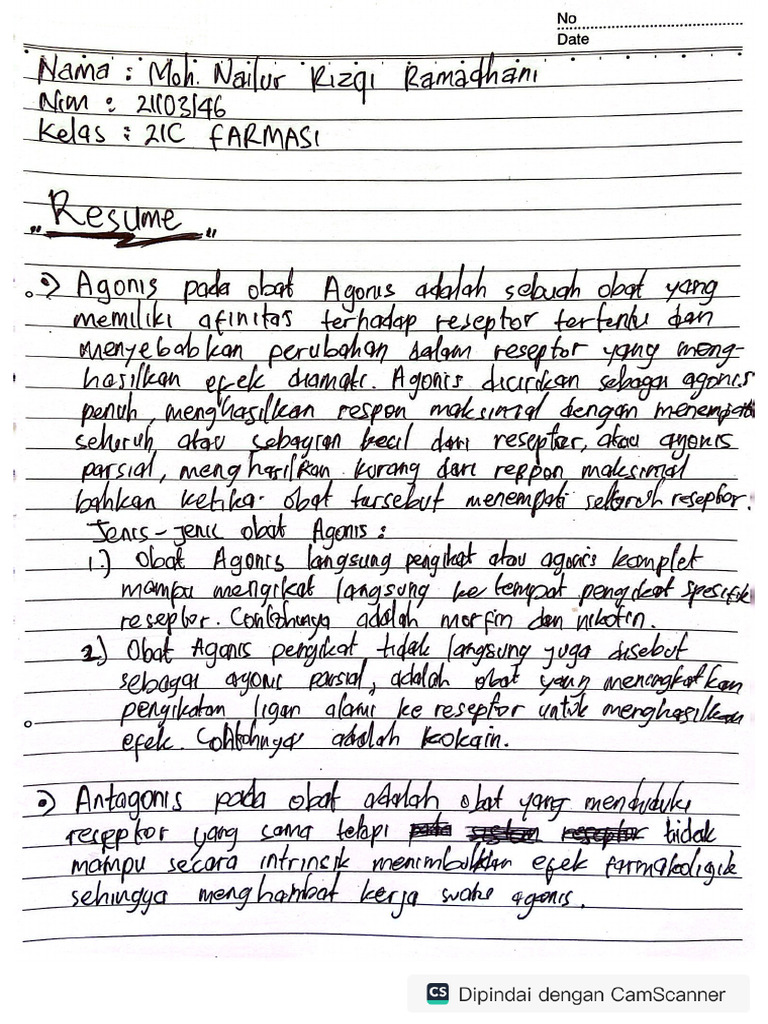 No
Date
Nama : Moh. Nailur Rizqi Ramadhani
Nim : 21103146
Kelas : 21C FARMASI
"Resume"
Agonis pada obat Agonis adalah sebuah obat yang
memiliki afinitas terhadap reseptor tertentu dan
menyebabkan perubahan dalam reseptor yang meng-
hasilkan efek diamati. Agonis dicirikan sebagai agonis
penuh, menghasilkan respon maksimal dengan menempati
seluruh atau sebagian kecil dari reseptor, atau agonis
parsial, menghasilkan kurang dari reppon maksimal
bahkan ketika obat tersebut menempati seluruh reseptor.
Jenis-jenis obat Agonis :
1.) Obat Agonis langsung pengikat atau agonis komplet
mampu mengikat langsung ke tempat pengikat spesifik
reseptor. Contohnya adalah morfin dan nikotin.
2) Obat Agonis pengikat tidak langsung juga disebut
sebagai agonis parsial, adalah obat yang meningkatkan
pengikatan ligan alami ke reseptor untuk menghasilkan
efek. Contohnya adalah kokain.
Antagonis pada obat adalah obat yang menduduki
reseptor yang sama tetapi tidak
mampu secara intrinsik menimbulkan efek farmakoligik
sehingga menghambat kerja suatu agonis.
CS Dipindai dengan CamScanner